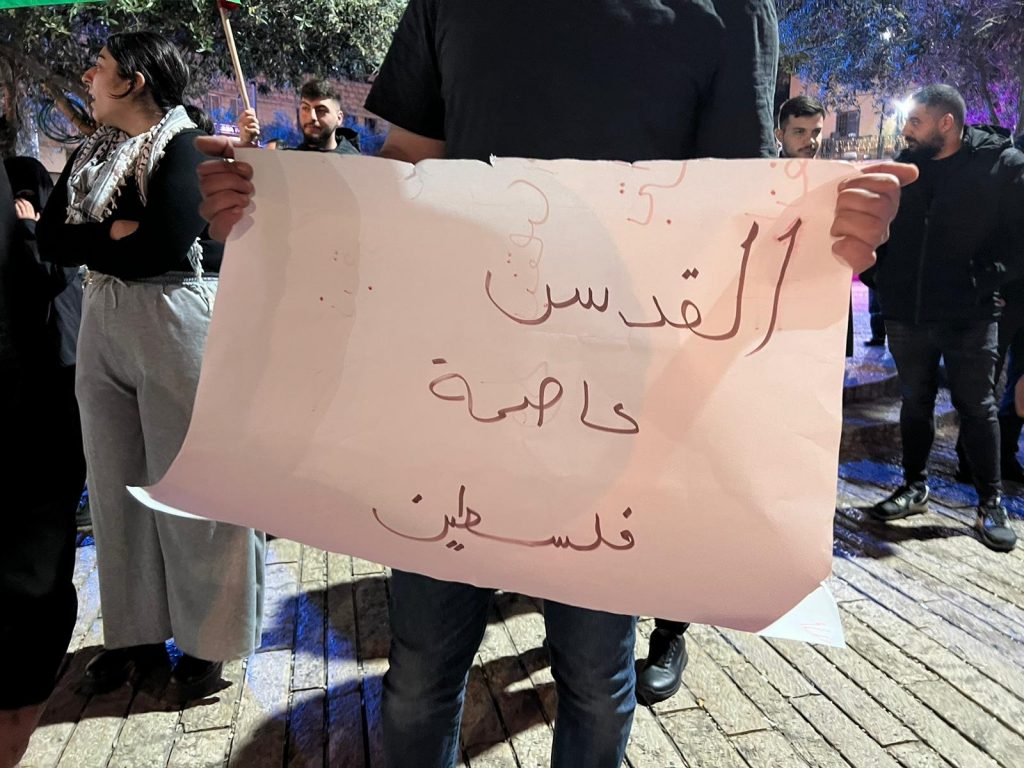 القدس
عاصمة
فلسطين